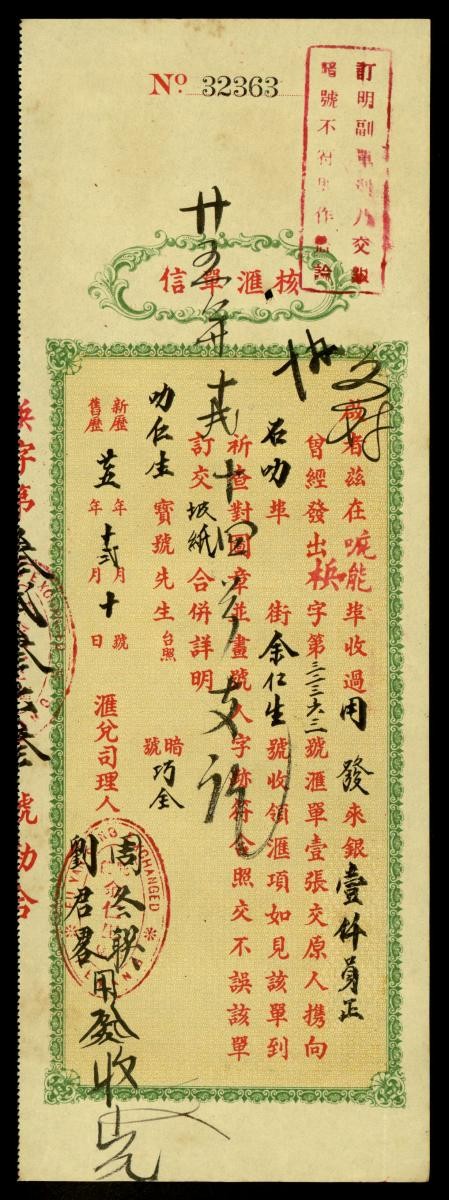 No. 32363
訂明副單到人交銀
暗號不符則作廢論
核滙單信
啟者茲在 埠收過用發來銀壹仟員正
曾經發出 字第三二三六三號滙單壹張交原人携向
石叻埠 街余仁生號收領滙項如見該單到
祈查對圖章並畫號人字跡符合照交不誤該單
訂交坡紙合併詳明
叻仁生寶號先生台照
暗號巧全
新歷 舊歷 年十弍月十號日
滙兌司理人
周 聯
劉君
用發收
廿五年十弍 十四 支訖
字第 叁弍叁六叁 號勘合
EXCHANGED